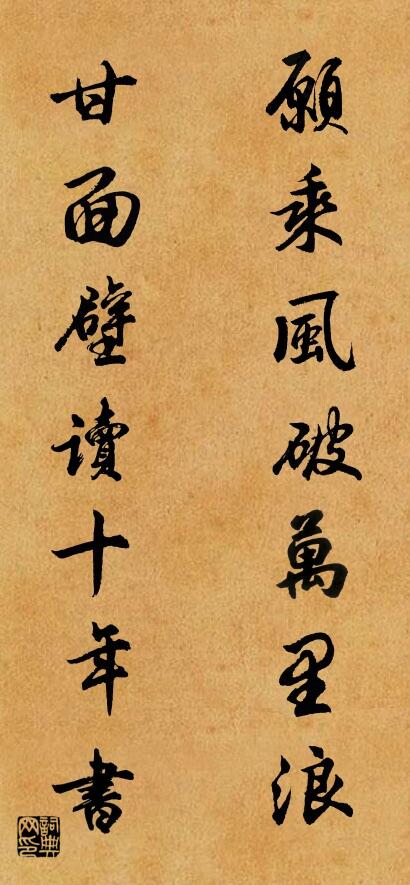 願乘風破萬里浪
甘面壁讀十年書
詞典
网印